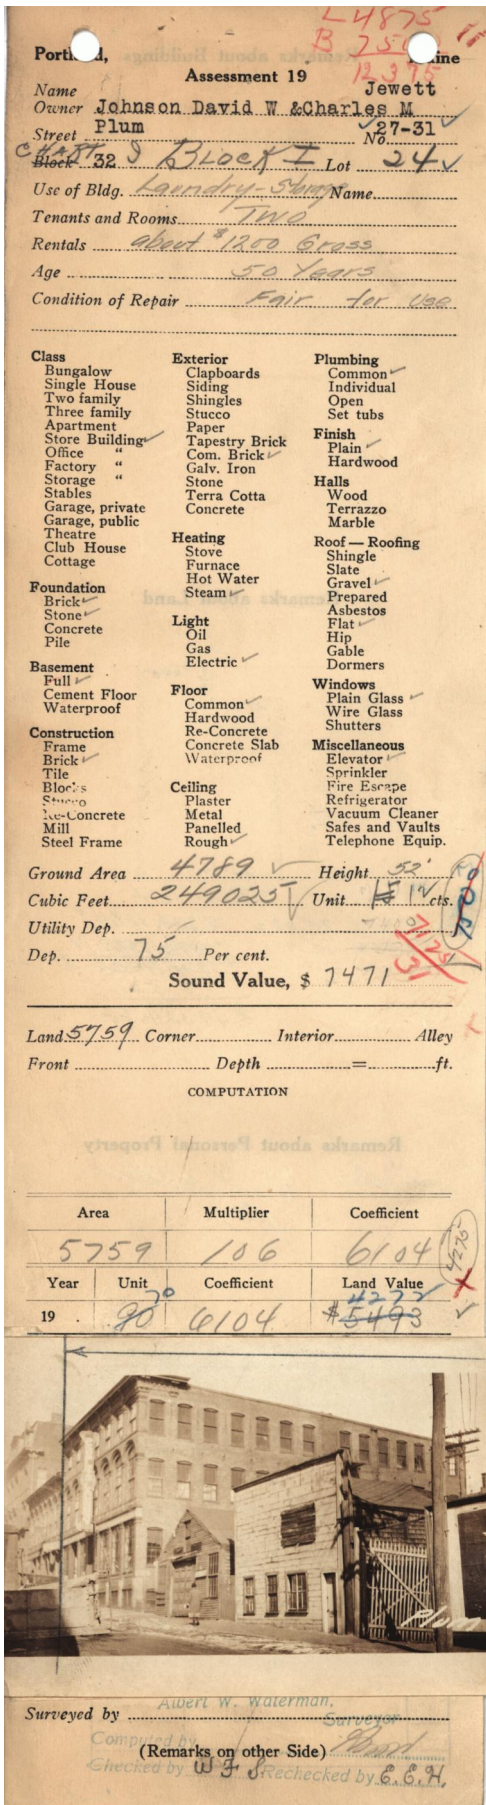 L 4875
B 750
12375
Portland, Maine
Assessment 19
Name Jewett
Owner Johnson David W &Charles M
Street Plum No. 27-31
CHART
Block 32 Block I Lot 24
Use of Bldg. Laundry-Storage Name
Tenants and Rooms Two
Rentals about $1200 Gross
Age 50 Years
Condition of Repair Fair for Use
Class
Bungalow
Single House
Two family
Three family
Apartment
Store Building
Office "
Factory "
Storage "
Stables
Garage, private
Garage, public
Theatre
Club House
Cottage
Foundation
Brick
Stone
Concrete
Pile
Basement
Full
Cement Floor
Waterproof
Construction
Frame
Brick
Tile
Blocks
Stucco
Re-Concrete
Mill
Steel Frame
Exterior
Clapboards
Siding
Shingles
Stucco
Paper
Tapestry Brick
Com. Brick
Galv. Iron
Stone
Terra Cotta
Concrete
Heating
Stove
Furnace
Hot Water
Steam
Light
Oil
Gas
Electric
Floor
Common
Hardwood
Re-Concrete
Concrete Slab
Waterproof
Ceiling
Plaster
Metal
Panelled
Rough
Plumbing
Common
Individual
Open
Set tubs
Finish
Plain
Hardwood
Halls
Wood
Terrazzo
Marble
Roof — Roofing
Shingle
Slate
Gravel
Prepared
Asbestos
Flat
Hip
Gable
Dormers
Windows
Plain Glass
Wire Glass
Shutters
Miscellaneous
Elevator
Sprinkler
Fire Escape
Refrigerator
Vacuum Cleaner
Safes and Vaults
Telephone Equip.
Ground Area 4789 Height 52'
Cubic Feet 249025 Unit 12 cts.
Utility Dep.
7125
31
Dep. 75 Per cent.
Sound Value, $ 7471
Land 5759 Corner Interior Alley
Front Depth = ft.
COMPUTATION
Area Multiplier Coefficient
5759 106 6104
4275
Year Unit Coefficient Land Value
70 4272
19 90 6104 $5493
Plum
Surveyed by Albert W. Waterman,
Surveyor
Computed by
(Remarks on other Side)
Checked by W F S Rechecked by E.E.H.